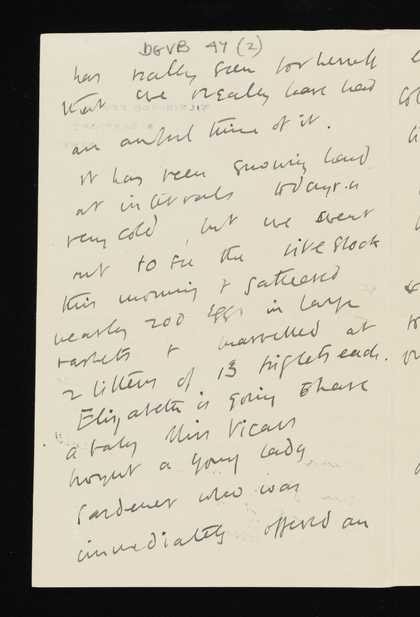 DGVB 47 (2)
has really seen for herself
that we really have had
an awful time of it.
It has been snowing hard
at intervals today & is
very cold, but we went
out to see the live stock
this morning & gathered
nearly 200 eggs in large
baskets & marvelled at
2 litters of 13 piglets each.
Elizabeth is going to have
a baby Miss Vicars
a young lady
gardener who was
immediately offered an